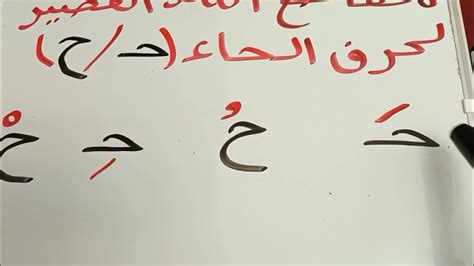 المد القصير
لحرف الحاء (حـ/ح)
حَـ حُ حِـ حْ